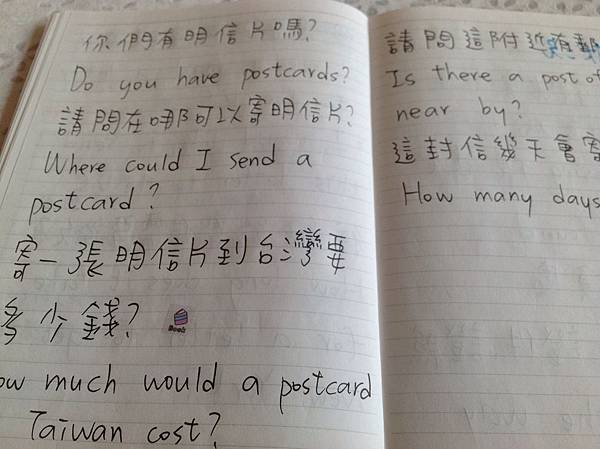 你們有明信片嗎?
Do you have postcards?
請問在哪可以寄明信片?
Where could I send a
postcard?
寄一張明信片到台灣要
多少錢?
ow much would a postcard
Taiwan cost?
請問這附近有郵
Is there a post of
near by?
這封信幾天會寄
How many days